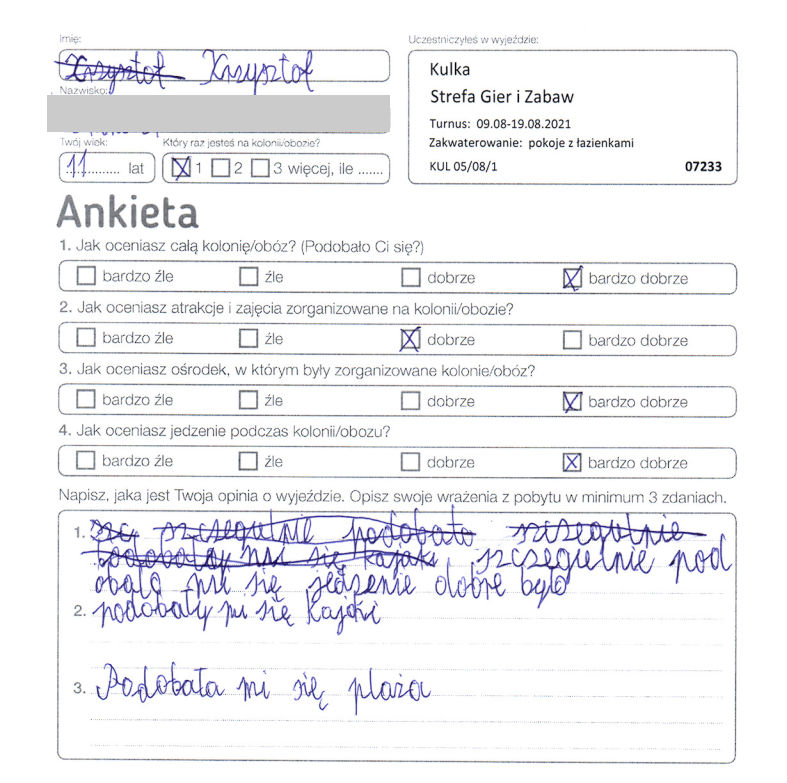 Imię:
Krzysztof Krzysztof
Uczestniczyłeś w wyjeździe:
Kulka
Strefa Gier i Zabaw
Turnus: 09.08-19.08.2021
Zakwaterowanie: pokoje z łazienkami
KUL 05/08/1 07233
Nazwisko:
Twój wiek: Który raz jesteś na kolonii/obozie?
11 lat 1 2 3 więcej, ile .......
Ankieta
1. Jak oceniasz całą kolonię/obóz? (Podobało Ci się?)
bardzo źle źle dobrze bardzo dobrze
2. Jak oceniasz atrakcje i zajęcia zorganizowane na kolonii/obozie?
bardzo źle źle dobrze bardzo dobrze
3. Jak oceniasz ośrodek, w którym były zorganizowane kolonie/obóz?
bardzo źle źle dobrze bardzo dobrze
4. Jak oceniasz jedzenie podczas kolonii/obozu?
bardzo źle źle dobrze bardzo dobrze
Napisz, jaka jest Twoja opinia o wyjeździe. Opisz swoje wrażenia z pobytu w minimum 3 zdaniach.
1. szczegulnie podobało szczegulnie
podobały mi się kajaki szczegulnie pod
obało mi się jedzenie dobre było
2. podobały mi się kajaki
3. Podobała mi się plaża